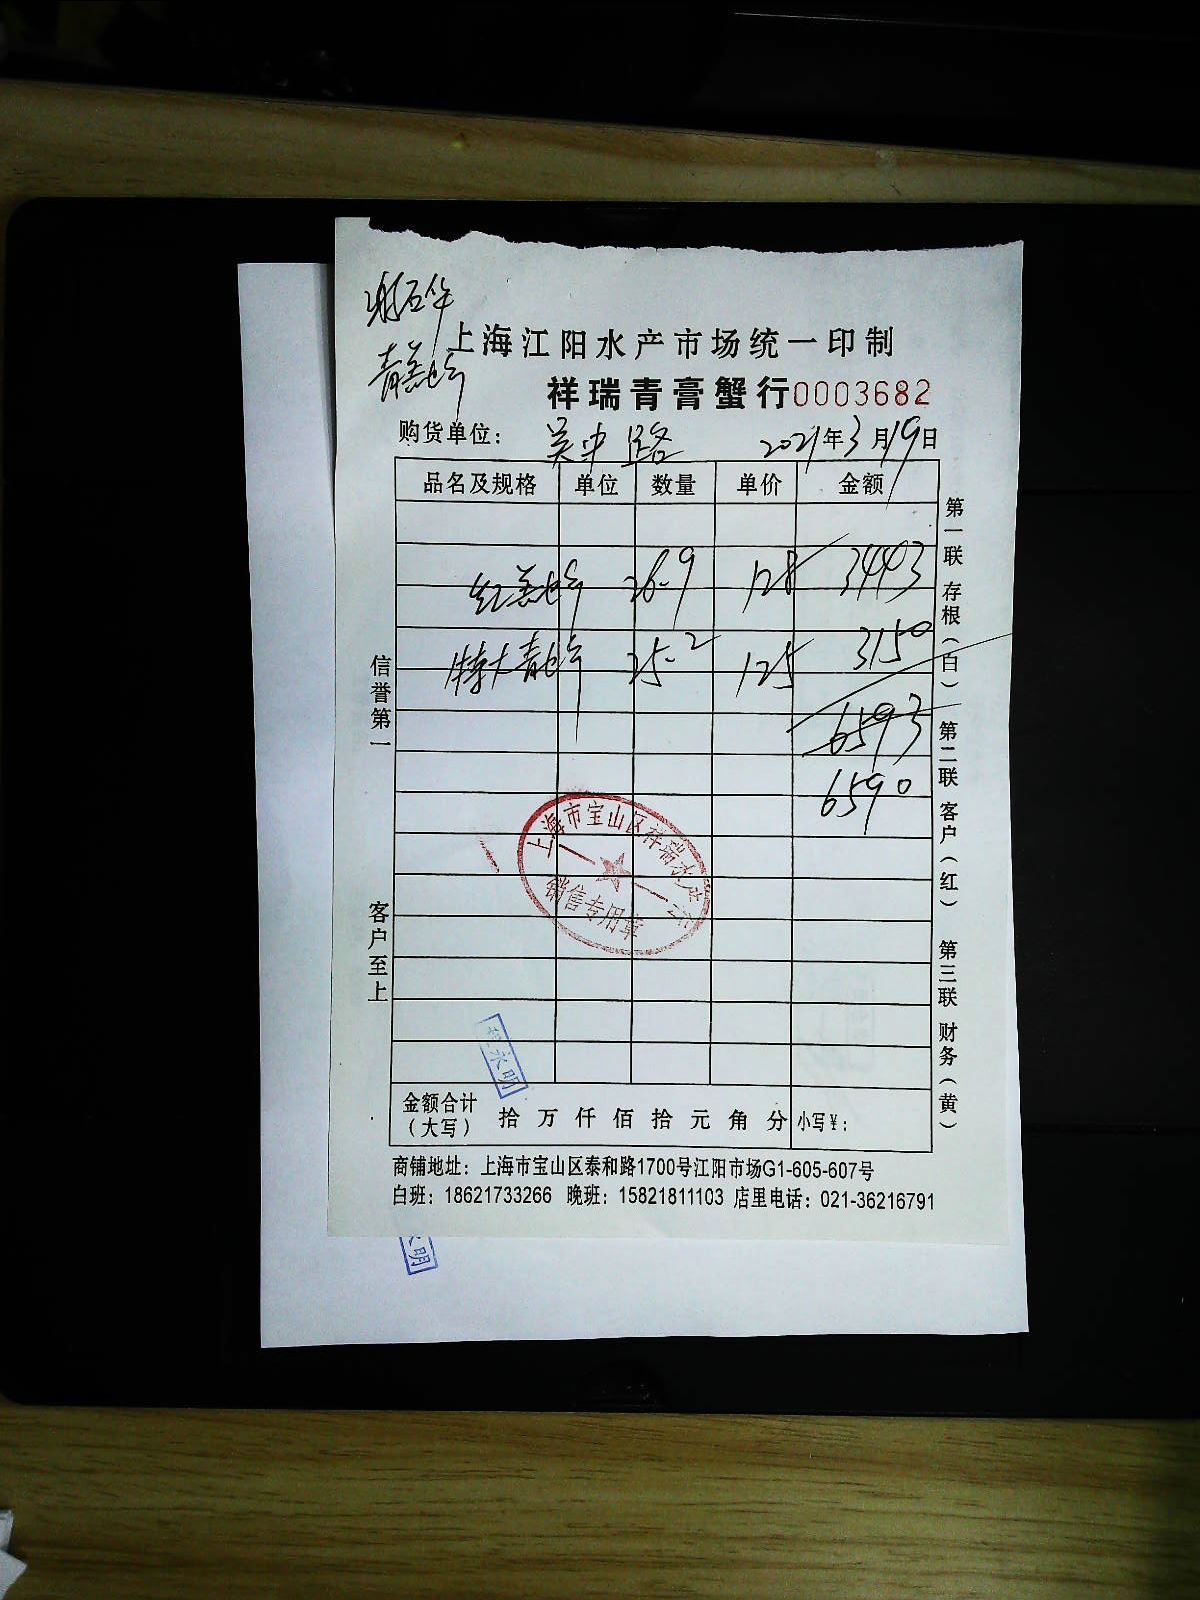 上海江阳水产市场统一印制
祥瑞青膏蟹行0003682
购货单位： 吴中路 2021年3月19日
品名及规格 单位 数量 单价 金额
26.9 128 3443
特大青 25.2 125 3150
6593
6590
上海市宝山区祥瑞水产
销售专用章
程永明
金额合计（大写） 拾 万 仟 佰 拾 元 角 分 小写¥：
商铺地址：上海市宝山区泰和路1700号江阳市场G1-605-607号
白班：18621733266 晚班：15821811103 店里电话：021-36216791
信誉第一 客户至上
第一联 存根（白） 第二联 客户（红） 第三联 财务（黄）
永明